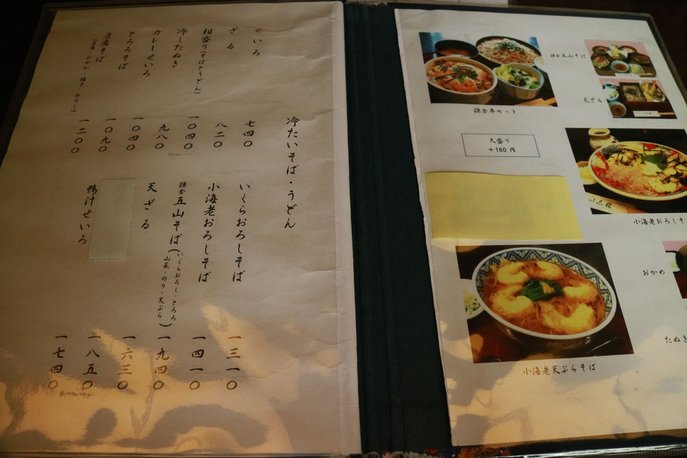 冷たいそば・うどん
せいろ 七四〇
ざる 八二〇
相盛り(そばとうどん) 一〇四〇
冷したぬき 九八〇
カレーせいろ 一〇四〇
とろろそば 一〇九〇
豆腐そば 一二〇〇
いくらおろしそば 一三一〇
小海老おろしそば 一四一〇
鎌倉五山そば(いくらおろし・とろろ
山菜・のり・天ぷら) 一九四〇
天ざる 一六三〇
一八五〇
鴨汁せいろ 一七四〇
鎌倉五山そば
鎌倉丼セット
天ざる
大盛り
+160円
小海老おろしそ
おかめ
たぬき
小海老天ぷらそば